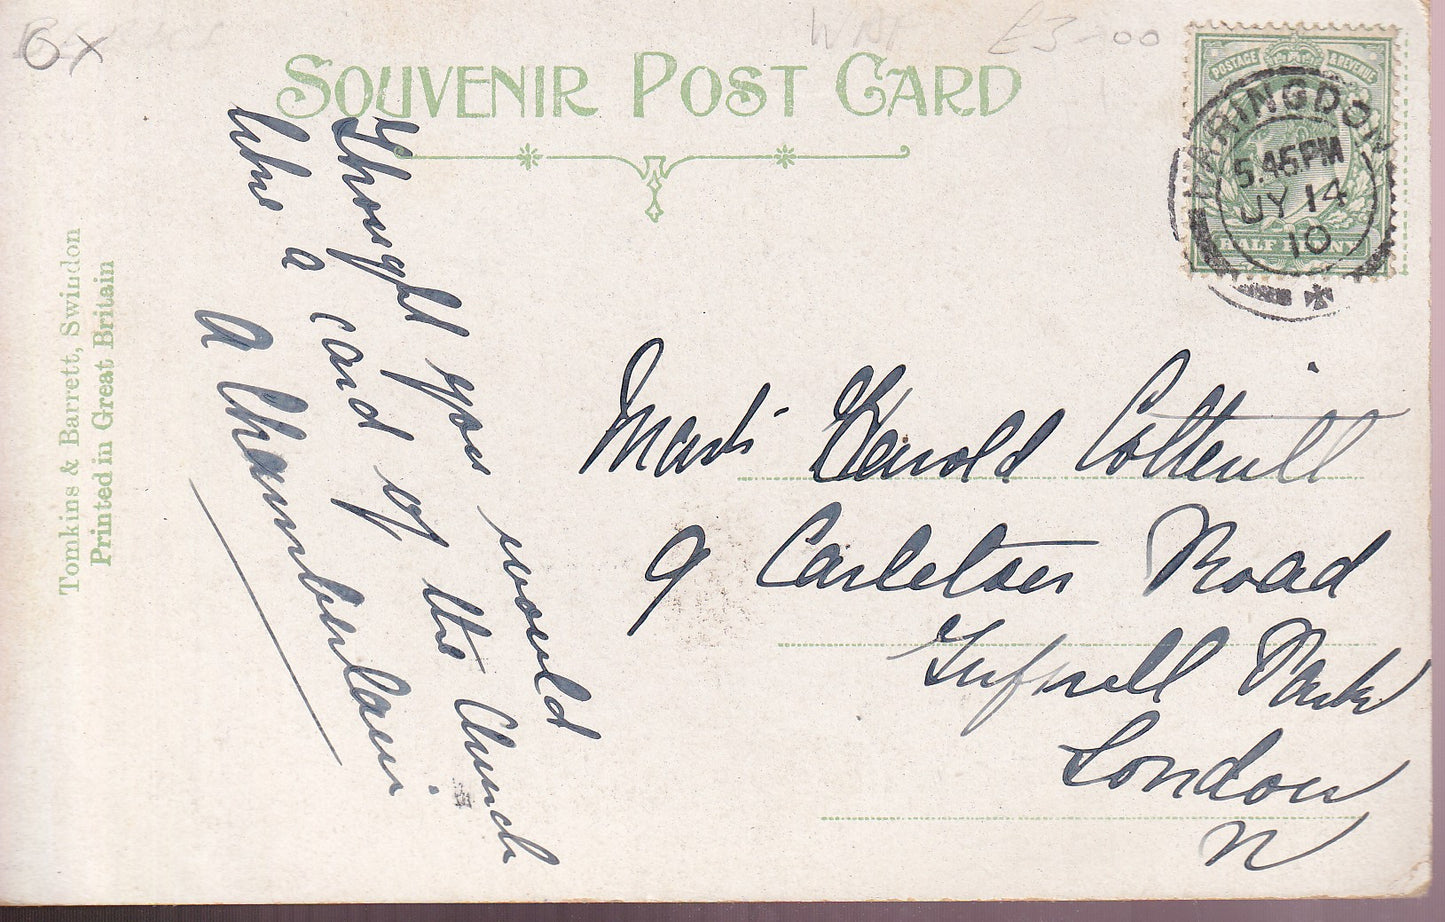 6x
£3-00
SOUVENIR POST CARD
POSTAGE & REVENUE
HALF PENNY
FARINGDON
5.45PM
JY 14
10
Tomkins & Barrett, Swindon
Printed in Great Britain
Thought you would
like a card of the Church
A Chamberlain
Mast. Harold Cotterill
9 Carleton Road
Tufnell Park
London
N